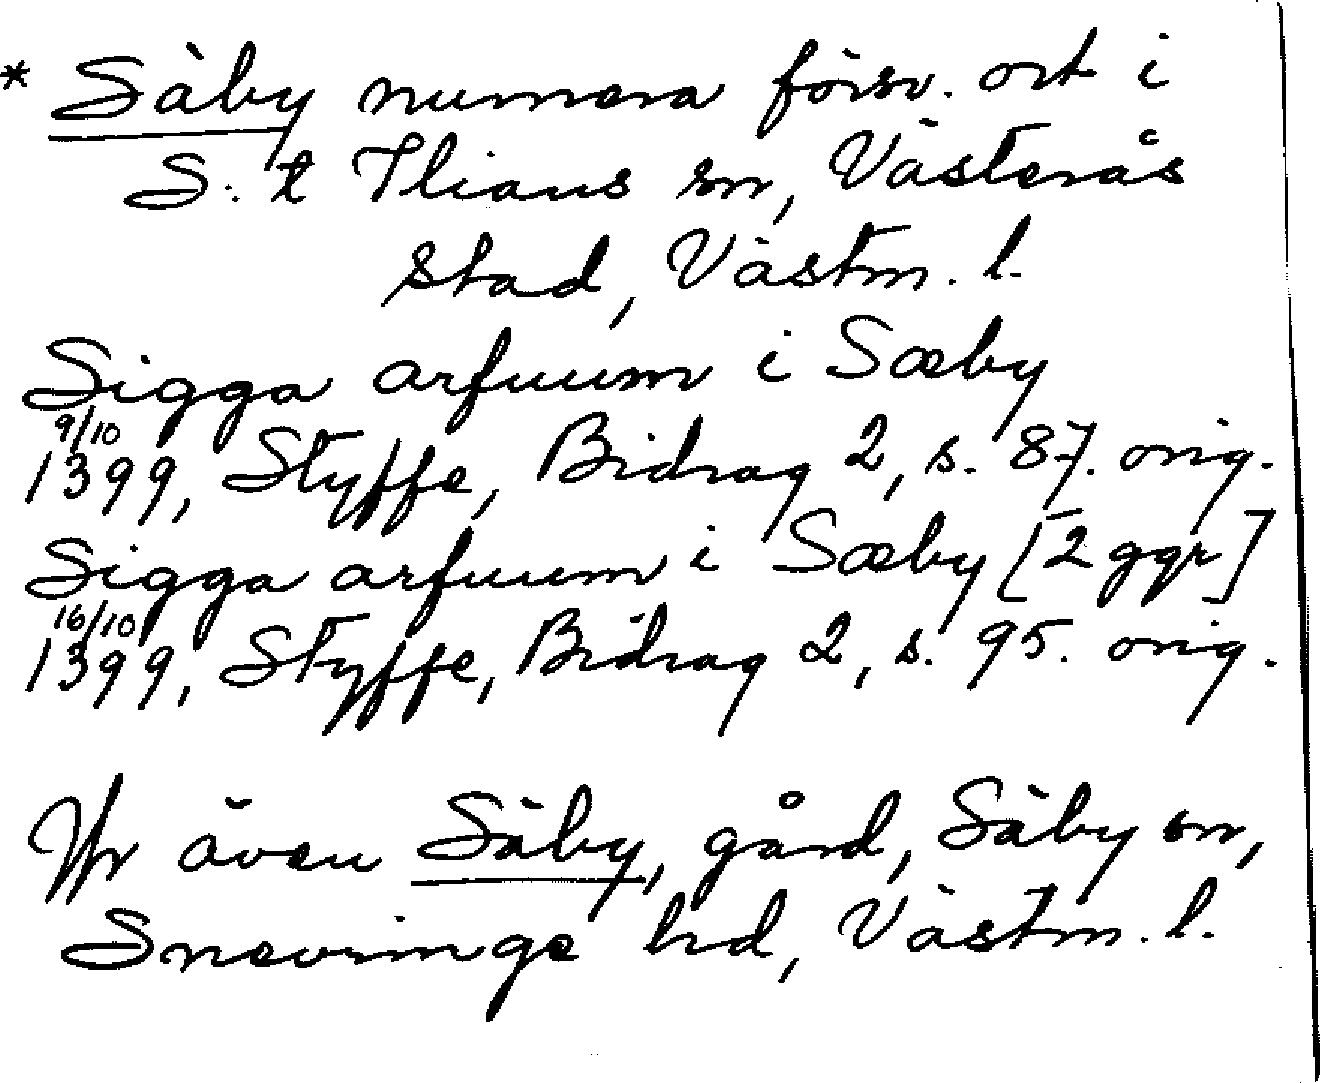 * Säby numera försv. ort i
S:t Ilians sn, Västerås
stad, Västm. l.
Sigga arfuum i Sæby
9/10
1399, Styffe, Bidrag 2, s. 87. orig.
Sigga arfuum i Sæby [2 ggr]
16/10
1399, Styffe, Bidrag 2, s. 95. orig.
Jfr även Säby, gård, Säby sn,
Snevringe hd, Västm. l.